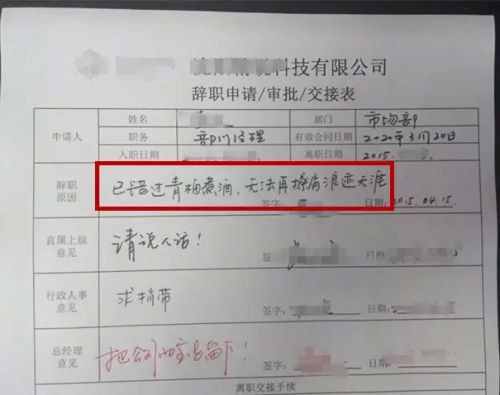 科技有限公司
辞职申请/审批/交接表
申请人 姓名 部门 市场部
职务 部门经理 有效合同日期 2020年3月20日
入职日期 离职日期 2015.
辞职
原因 已错过青梅煮酒,无法再 肩浪迹天涯
签字: 日期: 2015.04.15
直属上级
意见 请说人话!
签 日期
行政人事
意见 求捎带
签字: 日期
总经理
意见 把公司的宝马留下!
签字: 日期
离职交接手续